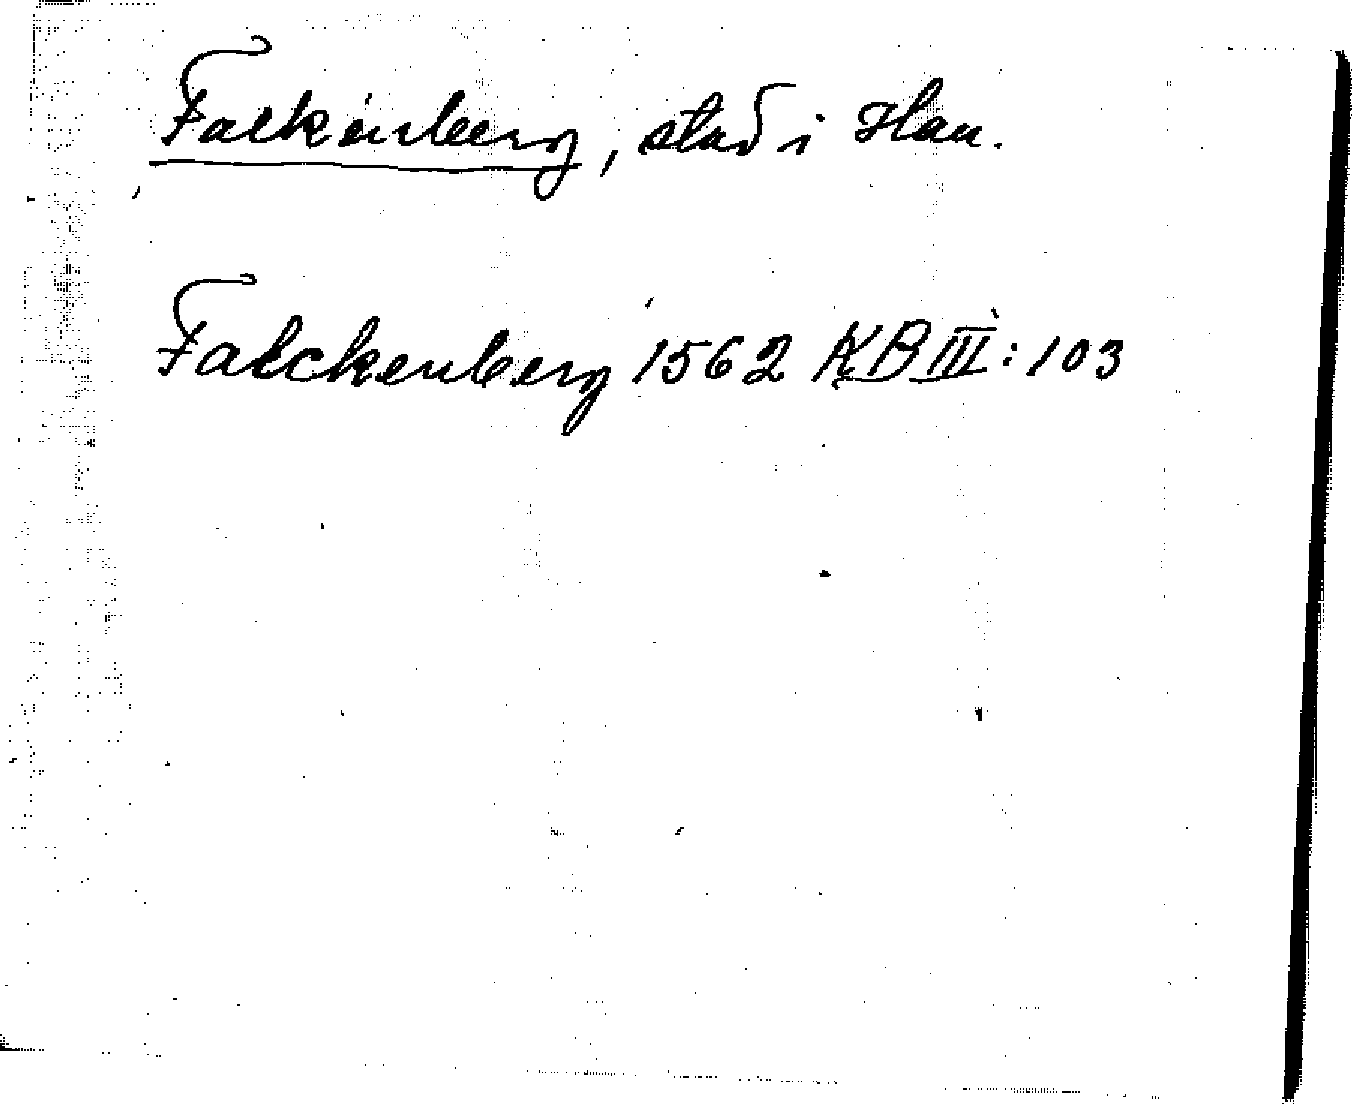 Falkenberg, stad i Han.
Falckenberg 1562 ÄB III: 103